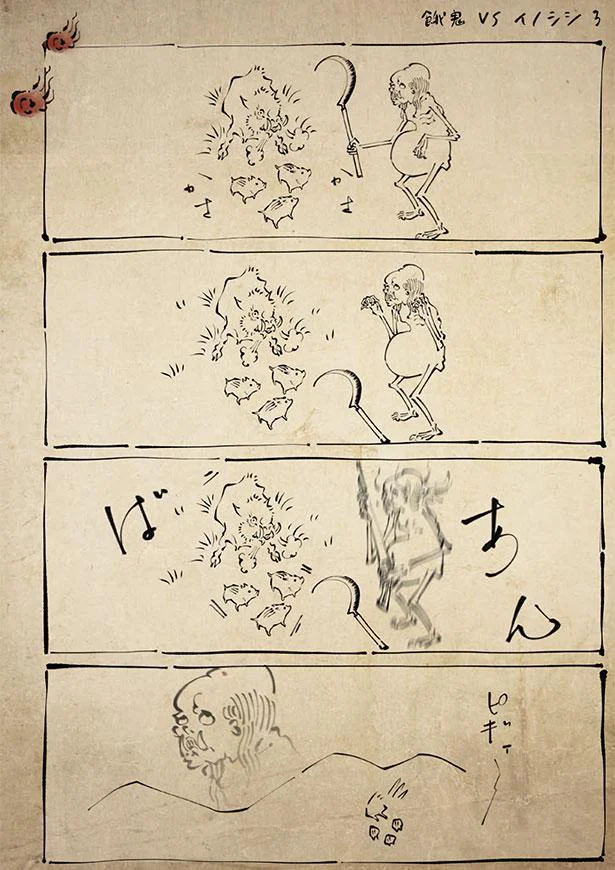 餓鬼 VS イノシシ 3
かさ
かさ
ば
あん
ピギィー